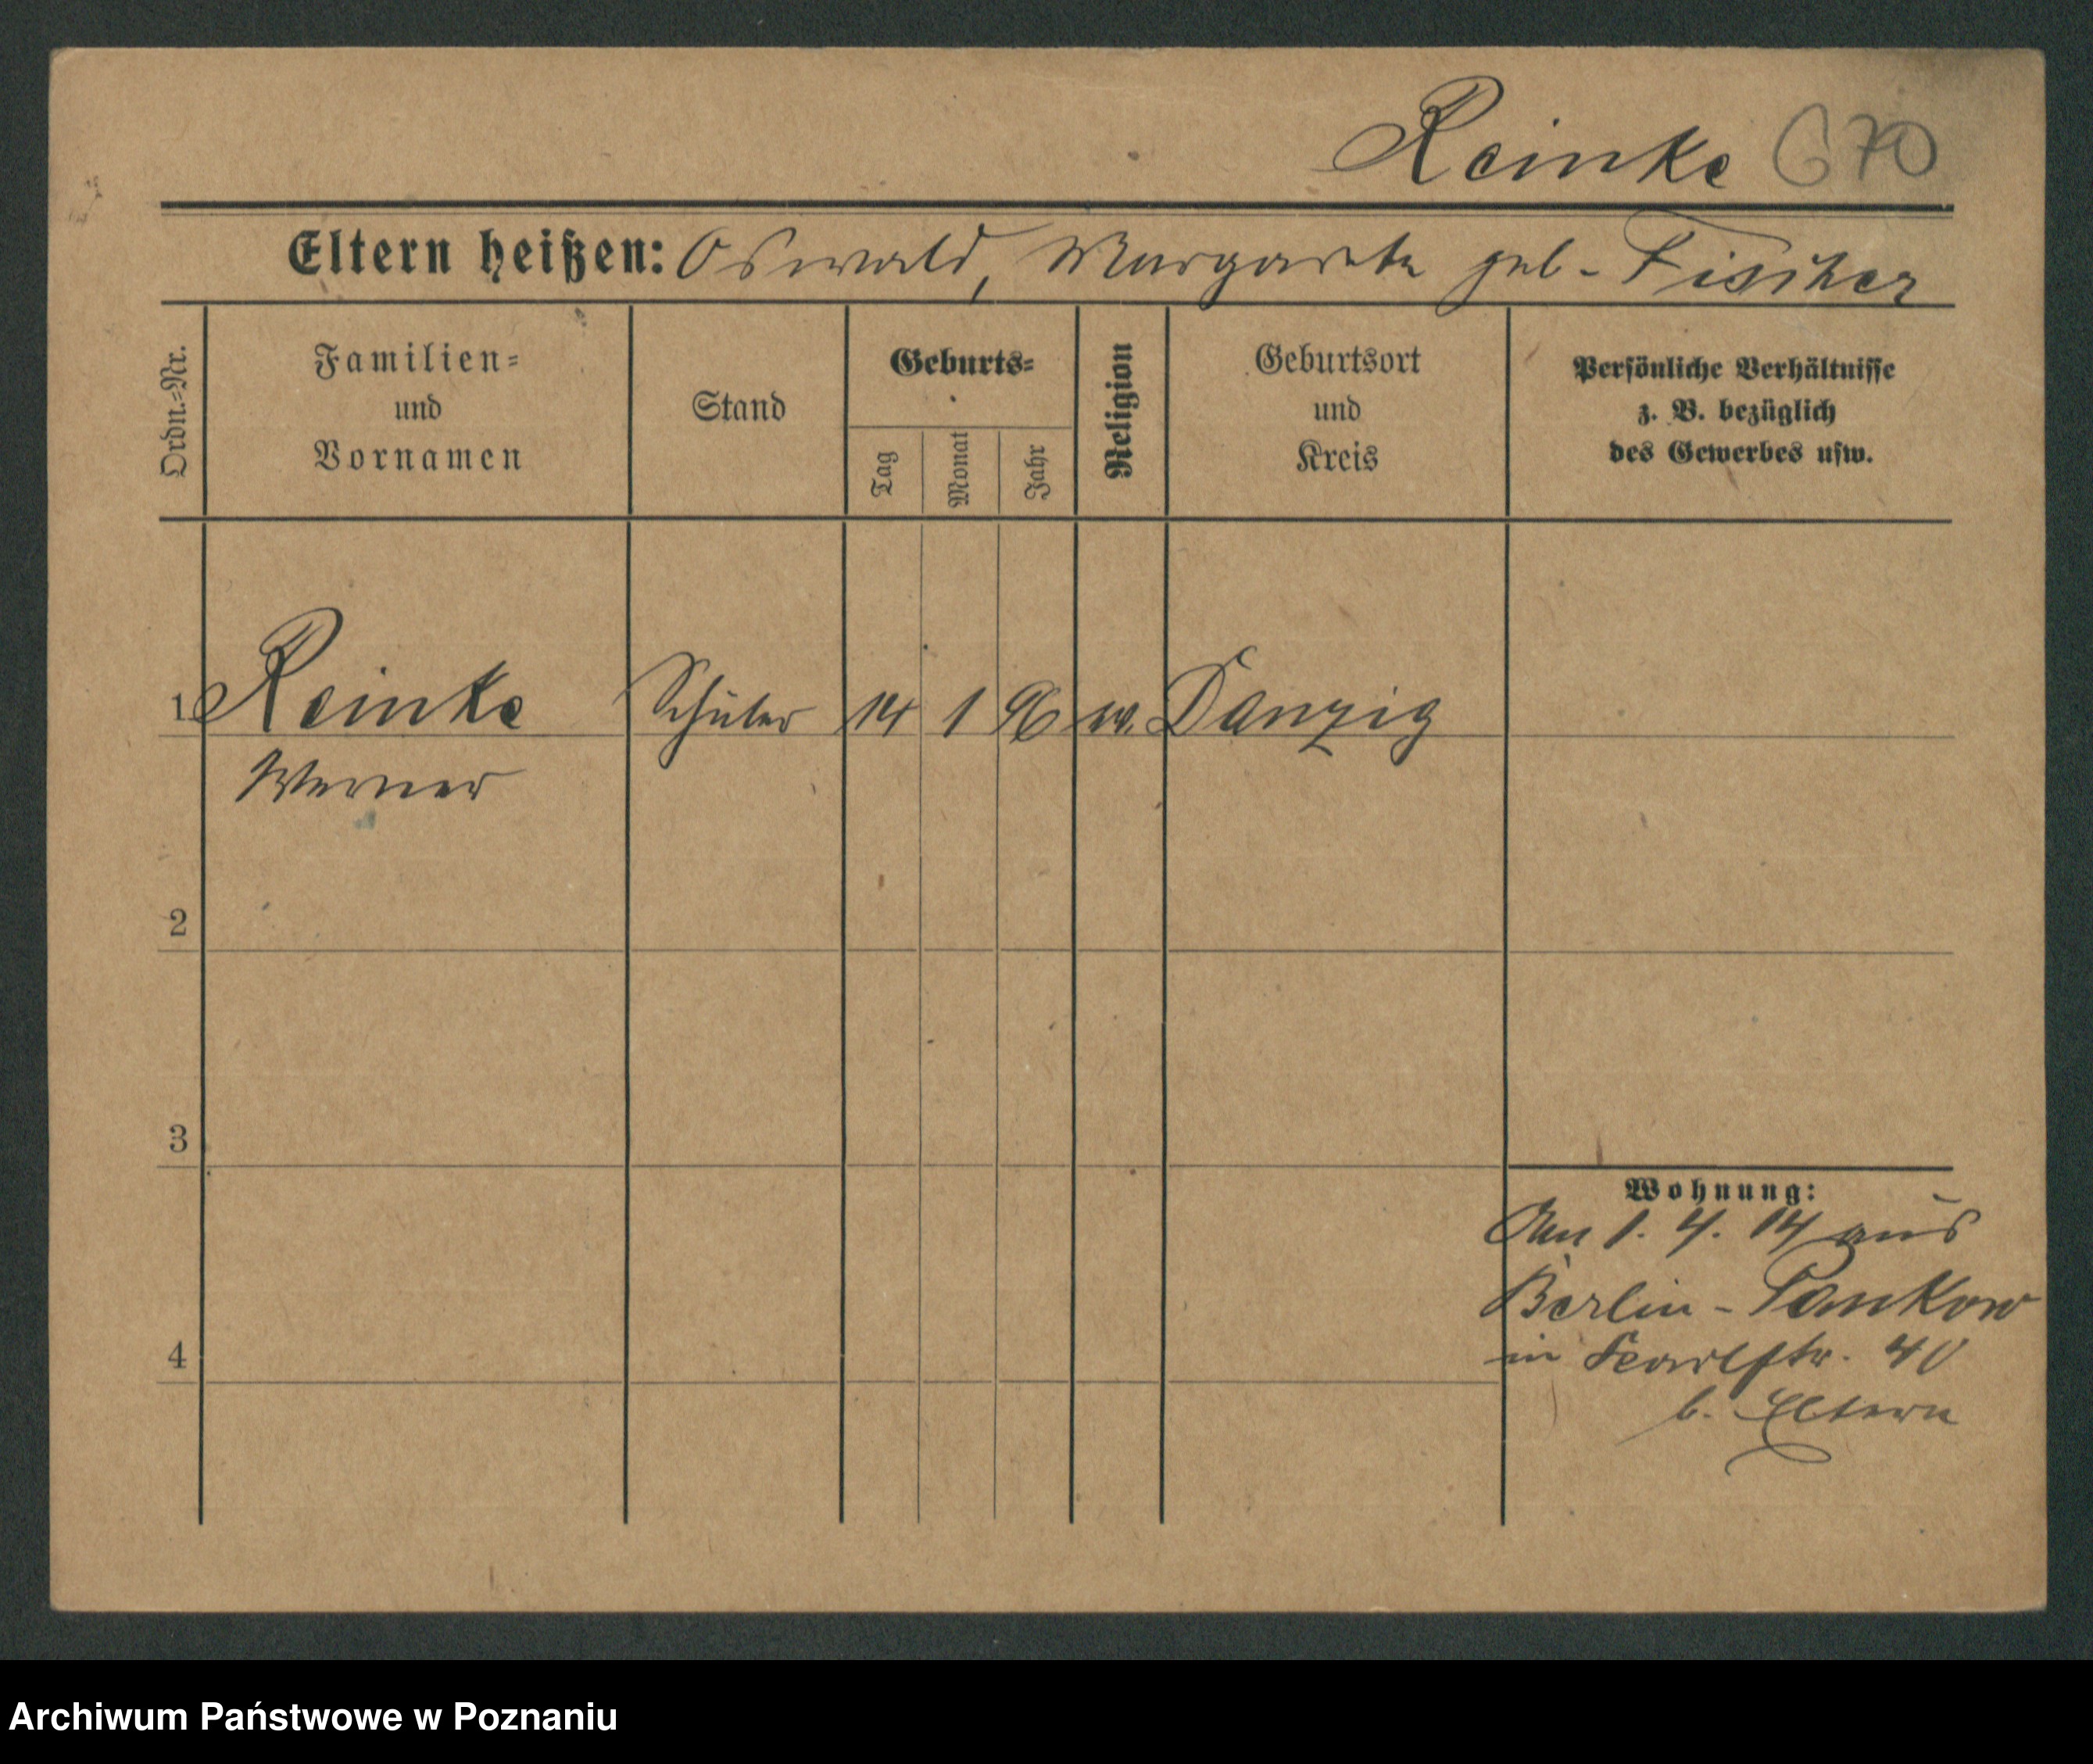 Reinke 670
Eltern heißen: Oswald, Margarete geb. Fischer
Ordn.-Nr.
Familien-
und
Vornamen
Stand
Geburts-
Tag
Monat
Jahr
Religion
Geburtsort
und
Kreis
Persönliche Verhältnisse
z. B. bezüglich
des Gewerbes usw.
1 Reinke Schüler 14 1 96 ev. Danzig
Werner
2
3
Wohnung:
Am 1. 4. 14 aus
Berlin-Pankow
4
in Karlstr. 40
b. Eltern
Archiwum Państwowe w Poznaniu